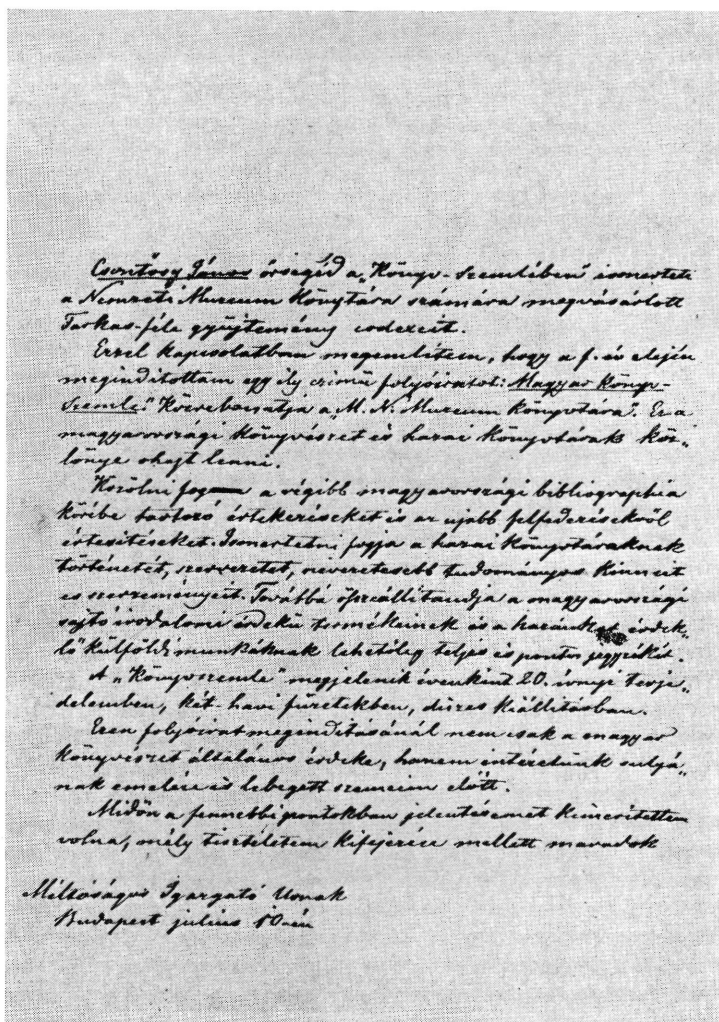 Csontosy János őrsegéd a „Könyv-Szemlében" ismerteti
a Nemzeti Muzeum Könytára számára megvásárlott
Farkas-féle gyüjtemény codexeit.
Ezzel kapcsolatban megemlítem, hogy a f. év elején
meginditottam egy ily czimü folyóiratot: „Magyar Könyv-
Szemle." Közrebocsátja a „M. N. Muzeum könyvtára". Ez a
magyarországi könyvészet és hazai könyvtárak köz„
lönye ohajt lenni.
Közölni fog a régibb magyarországi bibliographia
körébe tartozó értekezéseket és az ujabb felfedezésekről
értesitéseket. Ismertetni fogja a hazai könyvtáraknak
történetét, szervezetét, nevezetesebb tudományos kincseit
és szerzeményeit. Továbbá öszeállitandja a magyarországi
sajtó irodalomi érdekü termékeinek és a hazánkat érdek„
lő külföldi munkáknak lehetőleg teljes és pontos jegyzékét.
A „Könyvszemle" megjelenik évenkint 20. ívnyi terje„
delemben, két-havi füzetekben, díszes kiállitásban.
Ezen folyóirat meginditásánál nem csak a magyar
könyvészet általános érdeke, hanem intézetünk sulyá„
nak emelése is lebegett szemeim előtt.
Midőn a fennebbi pontokban jelentésemet kimeritettem
volna, mély tiszteletem kifejezése mellett maradok
Méltóságos Igazgató Urnak
Budapest julius 10-én